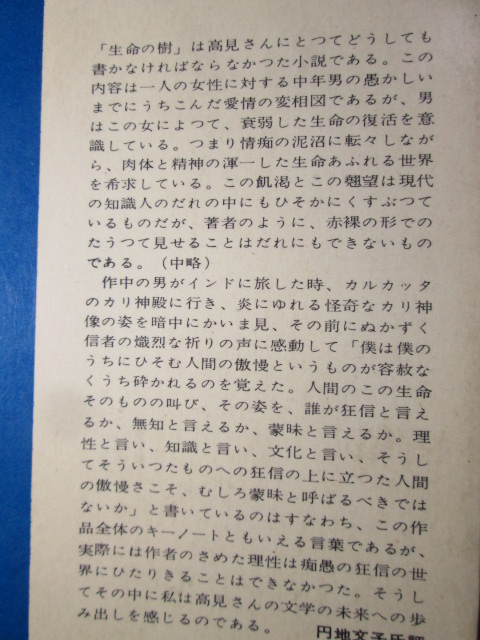 「生命の樹」は高見さんにとつてどうしても
書かなければならなかつた小説である。この
内容は一人の女性に対する中年男の愚かしい
までにうちこんだ愛情の変相図であるが、男
はこの女によつて、衰弱した生命の復活を意
識している。つまり情痴の泥沼に転々しなが
ら、肉体と精神の渾一した生命あふれる世界
を希求している。この飢渇とこの翹望は現代
の知識人のだれの中にもひそかにくすぶつて
いるものだが、著者のように、赤裸の形での
たうつて見せることはだれにもできないもの
である。（中略）
作中の男がインドに旅した時、カルカッタ
のカリ神殿に行き、炎にゆれる怪奇なカリ神
像の姿を暗中にかいま見、その前にぬかずく
信者の熾烈な祈りの声に感動して「僕は僕の
うちにひそむ人間の傲慢というものが容赦な
くうち砕かれるのを覚えた。人間のこの生命
そのものの叫び、その姿を、誰が狂信と言え
るか、無知と言えるか、蒙昧と言えるか。理
性と言い、知識と言い、文化と言い、そうし
てそういつたものへの狂信の上に立つた人間
の傲慢さこそ、むしろ蒙昧と呼ばるべきでは
ないか」と書いているのはすなわち、この作
品全体のキーノートともいえる言葉であるが、
実際には作者のさめた理性は痴愚の狂信の世
界にひたりきることはできなかつた。そうし
てその中に私は高見さんの文学の未来への歩
み出しを感じるのである。
円地文子氏評